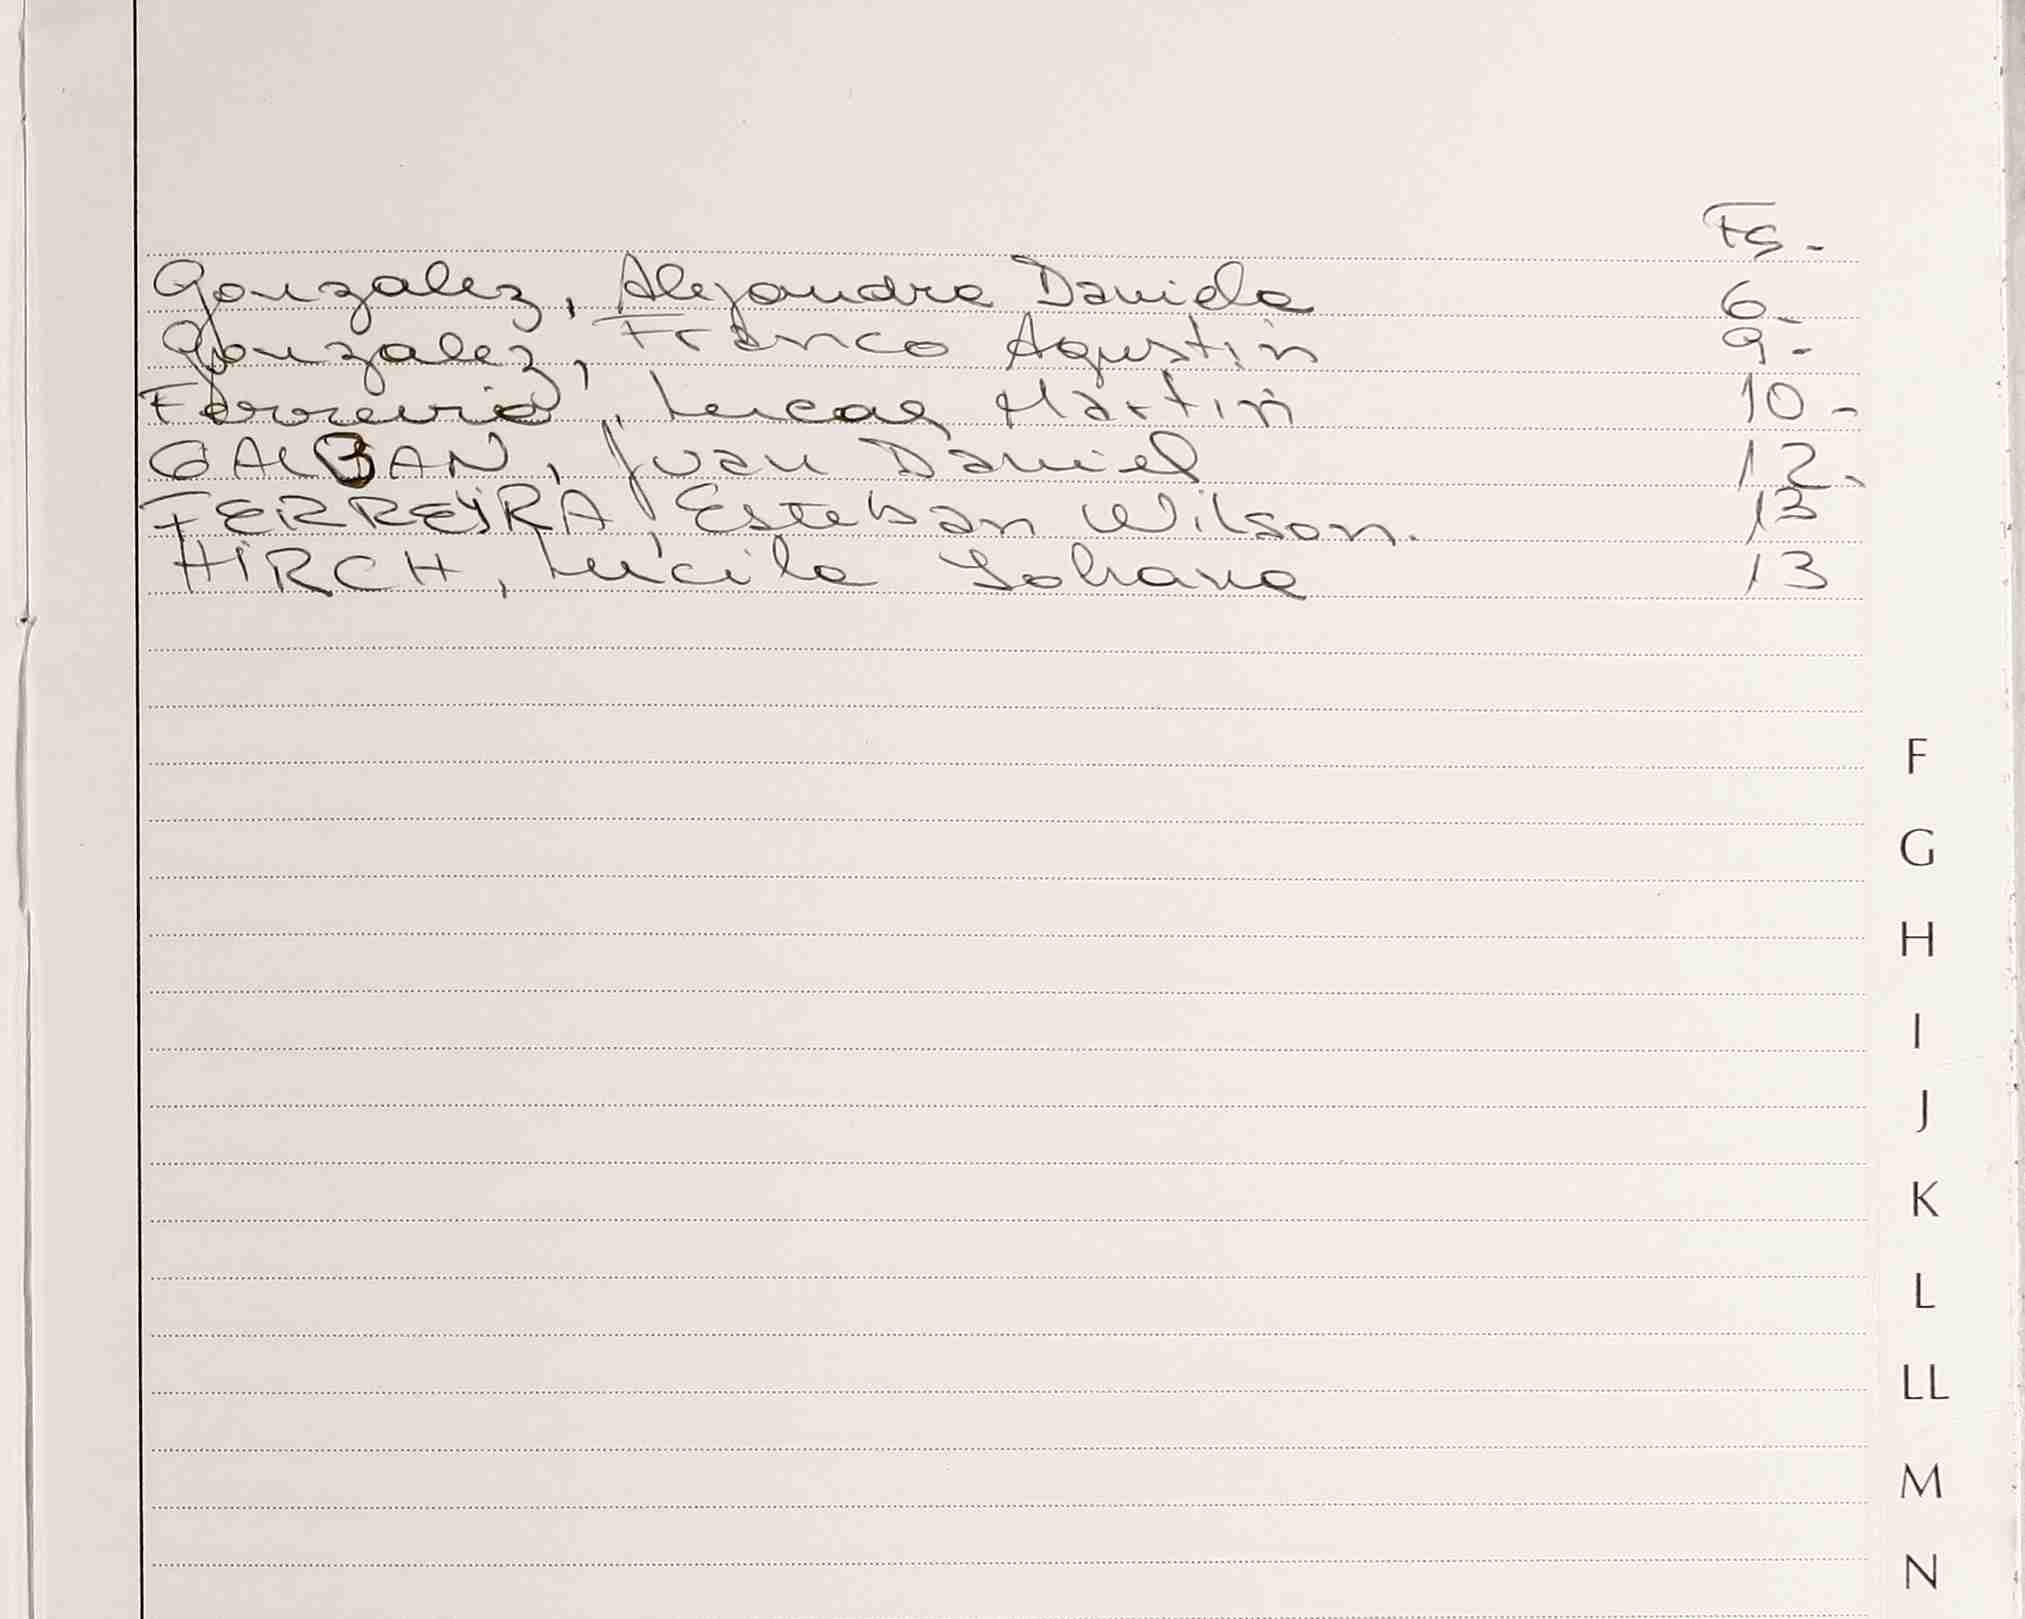 Fs.-
Gonzalez, Alejandra Daniela 6.-
Gonzalez, Franco Agustin 9.-
Ferreira, Lucas Martin 10.-
GALBAN, Juan Daniel 12.-
FERREYRA, Esteban Wilson. 13
HIRCH, Lucila Johana 13
F
G
H
I
J
K
L
LL
M
N